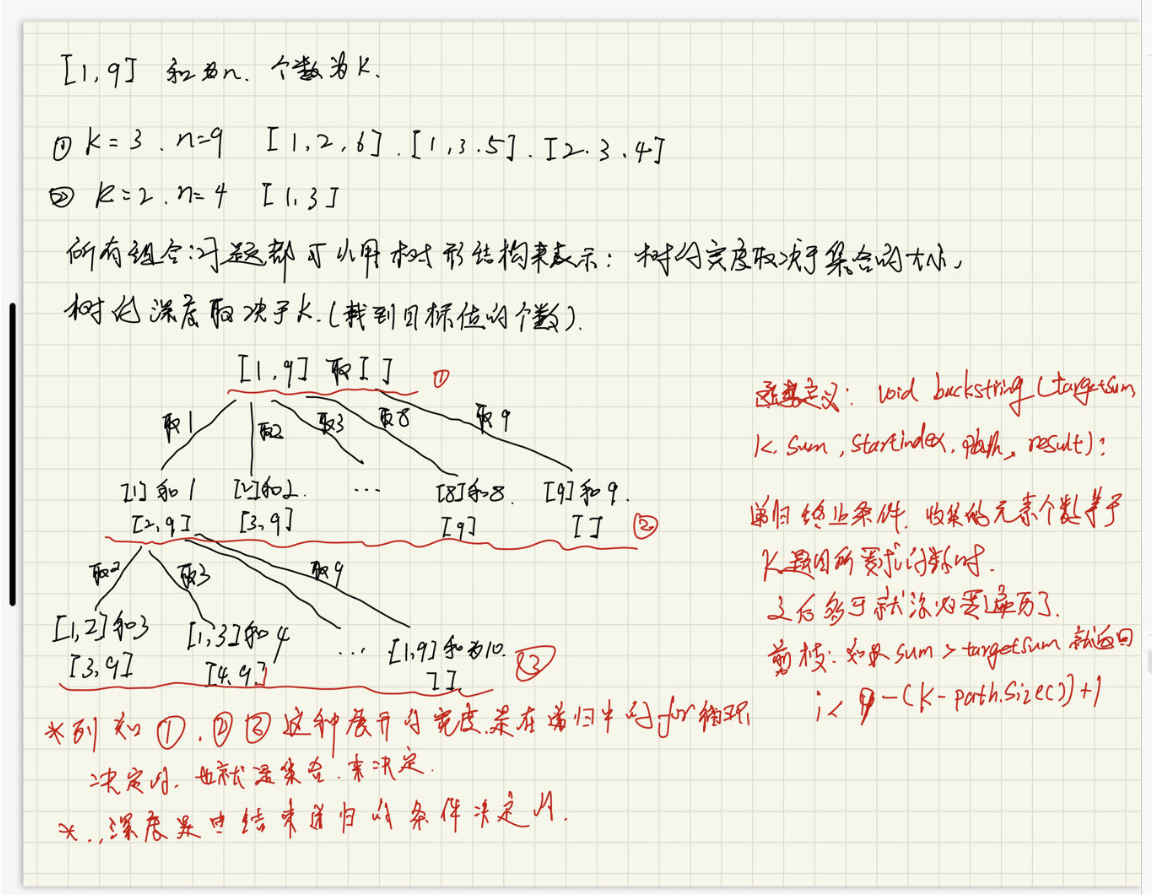 [1,9] 和为n. 个数为K.
① K=3. n=9 [1,2,6]. [1,3.5]. [2.3.4]
② K=2. n=4 [1,3]
所有组合问题都可以用树形结构来表示: 树的宽度取决于集合的大小,
树的深度取决于k.(找到目标值的个数).
[1,9] 取[] ①
取1 取2 取3 取8 取9
[1]和1 [2]和2. ... [8]和8. [9]和9.
[2,9] [3,9] [9] [] ②
取2 取3 取9
[1,2]和3 [1,3]和4 ... [1,9]和为10. ③
[3,9] [4.9] []
*例如①.②③这种展开的宽度.是在递归中的for循环
决定的. 也就是集合.来决定.
*.,深度是由结束递归的条件决定的.
定义: void backstring (targetsum,
K. sum, startindex, path, result):
递归终止条件. 收集的元素个数等于
K.题目所要求的数时.
之后的就没必要遍历了.
剪枝: 如果sum > targetsum 就返回
i< 9-(K-path.size())+1